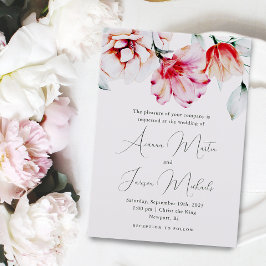 The pleasure of your company is
requested at the wedding of
Arianna Martin
and
Jansen Michaels
Saturday, September 19th, 2025
5:00 pm | Christ the King
Newport, RI
RECEPTION TO FOLLOW